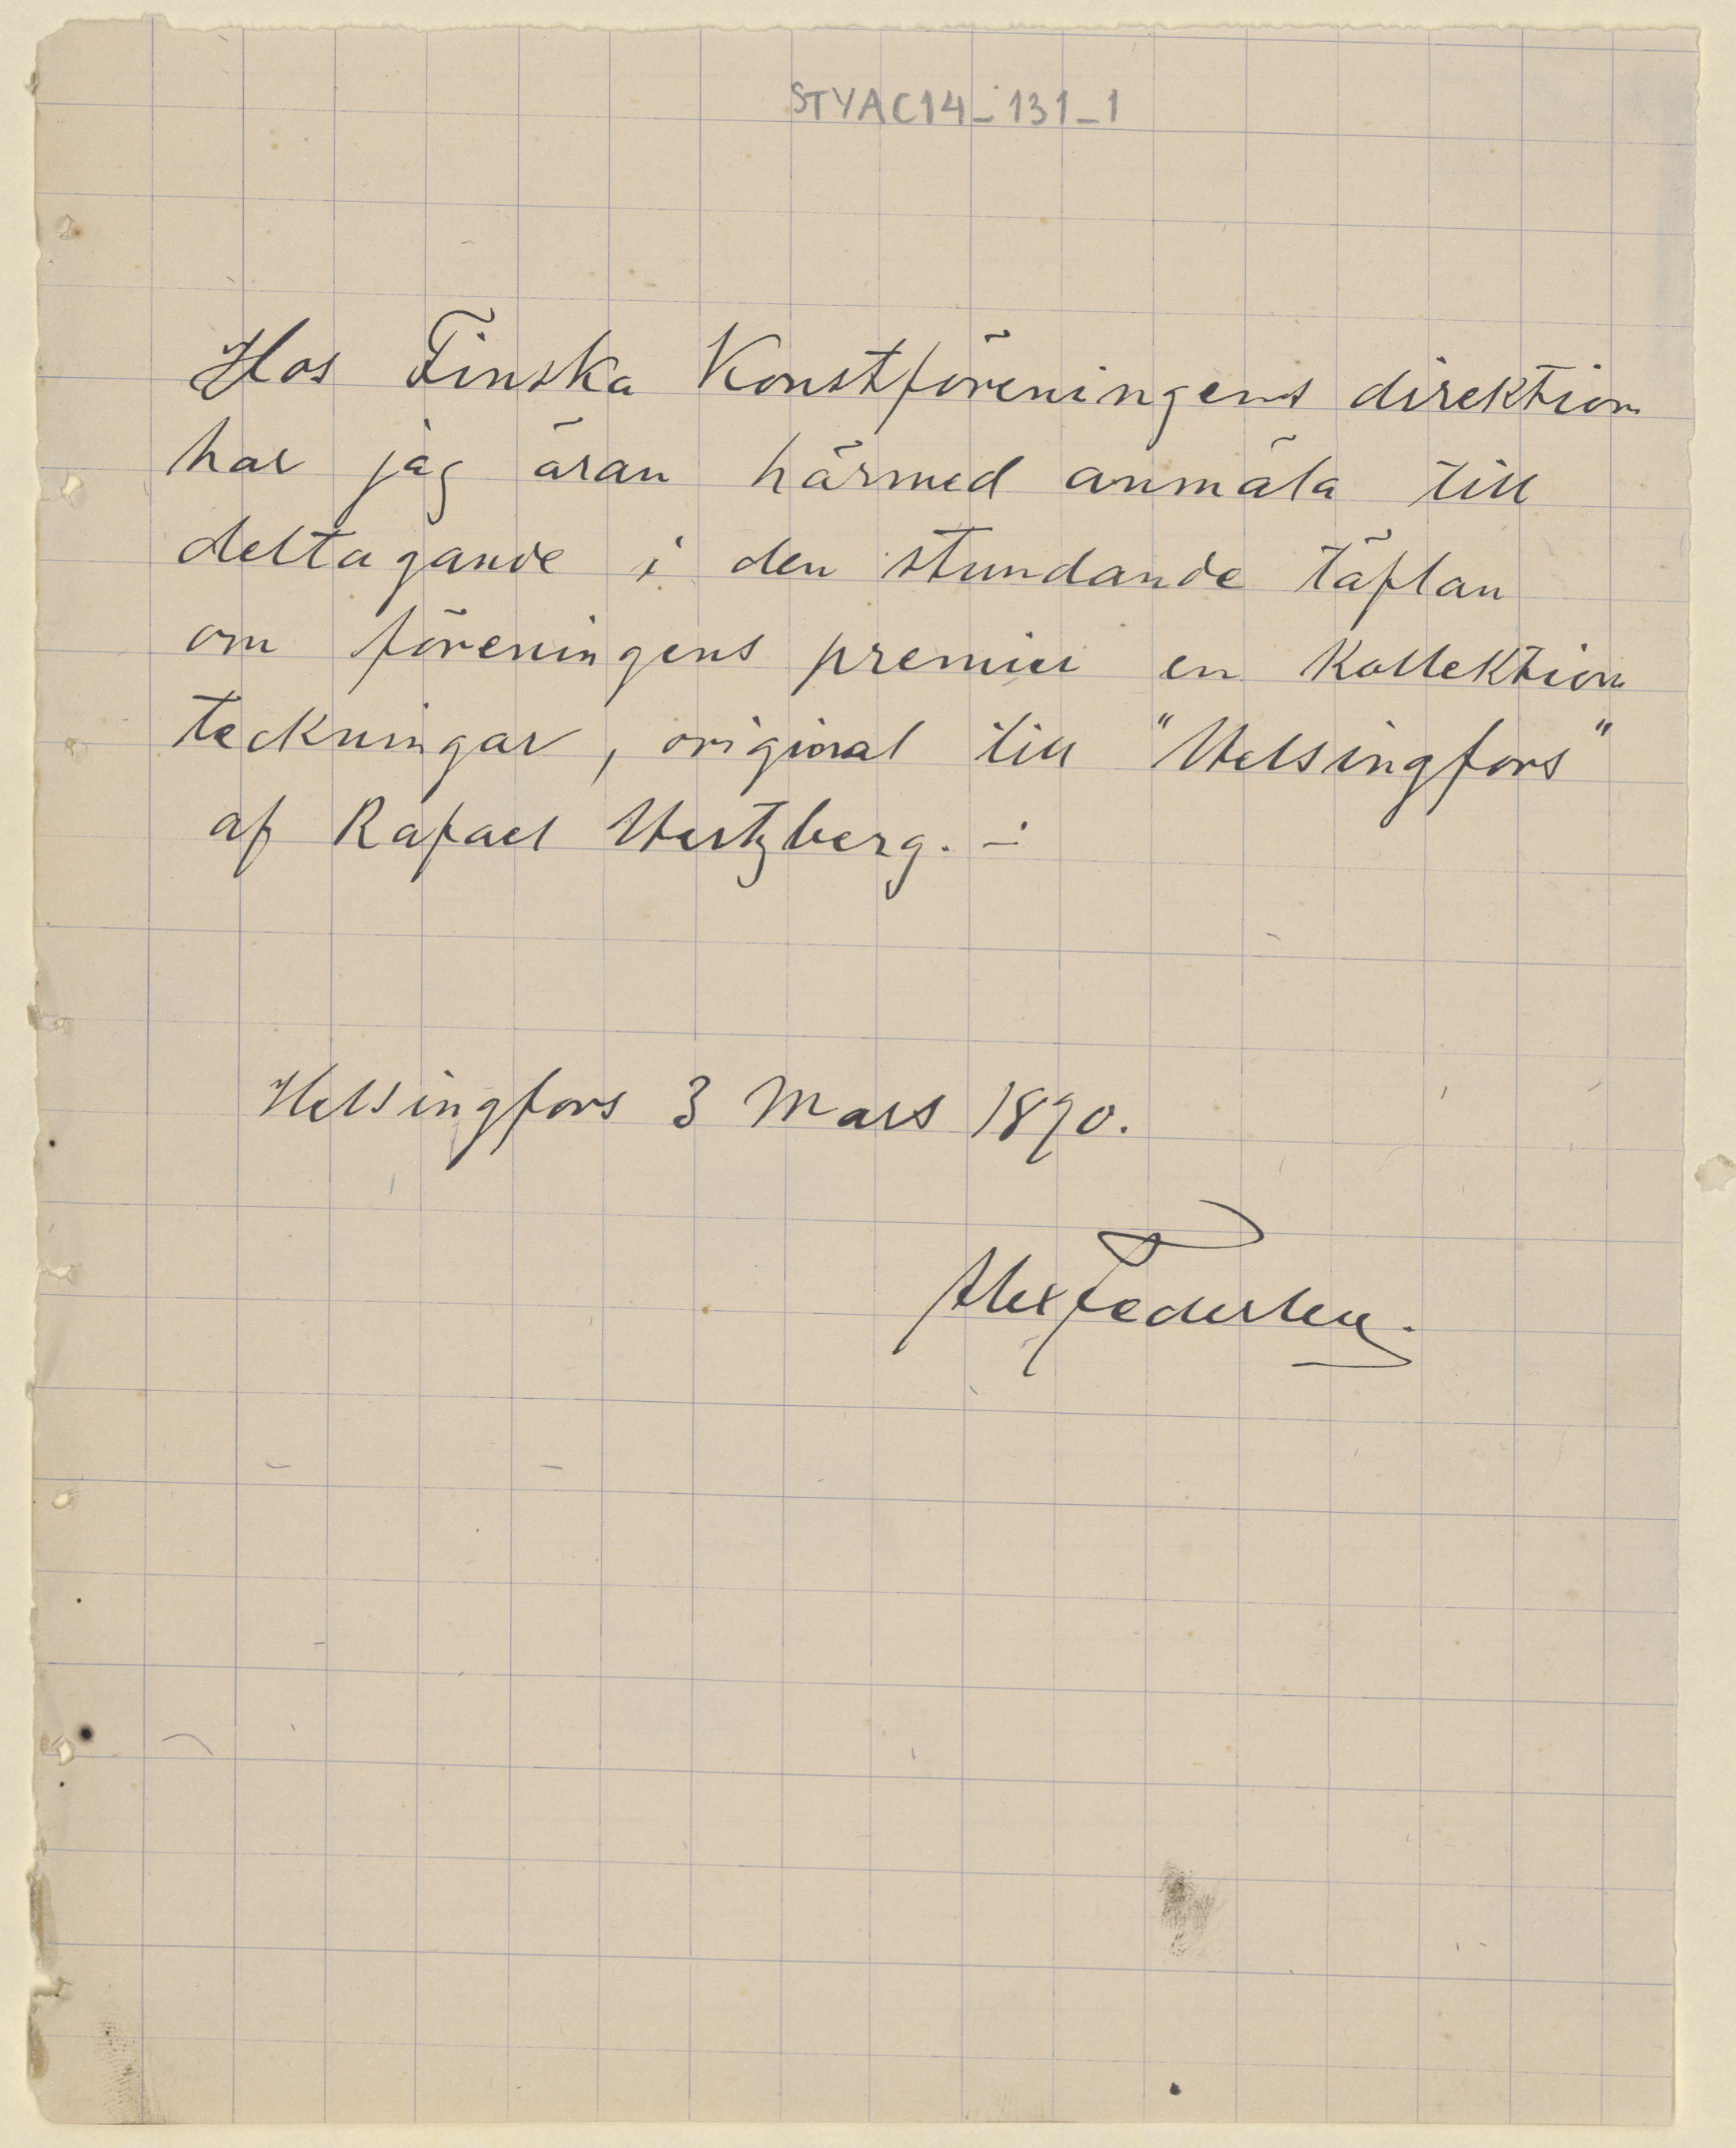 STYAC14_131_1
Hos Finska Konstföreningens direktion
har jag äran härmed anmäla till
deltagande i den stundande täflan
om föreningens premier en kollektion
teckningar, original till "Helsingfors"
af Rafael Hertzberg. –
Helsingfors 3 Mars 1890.
Alex Federley.